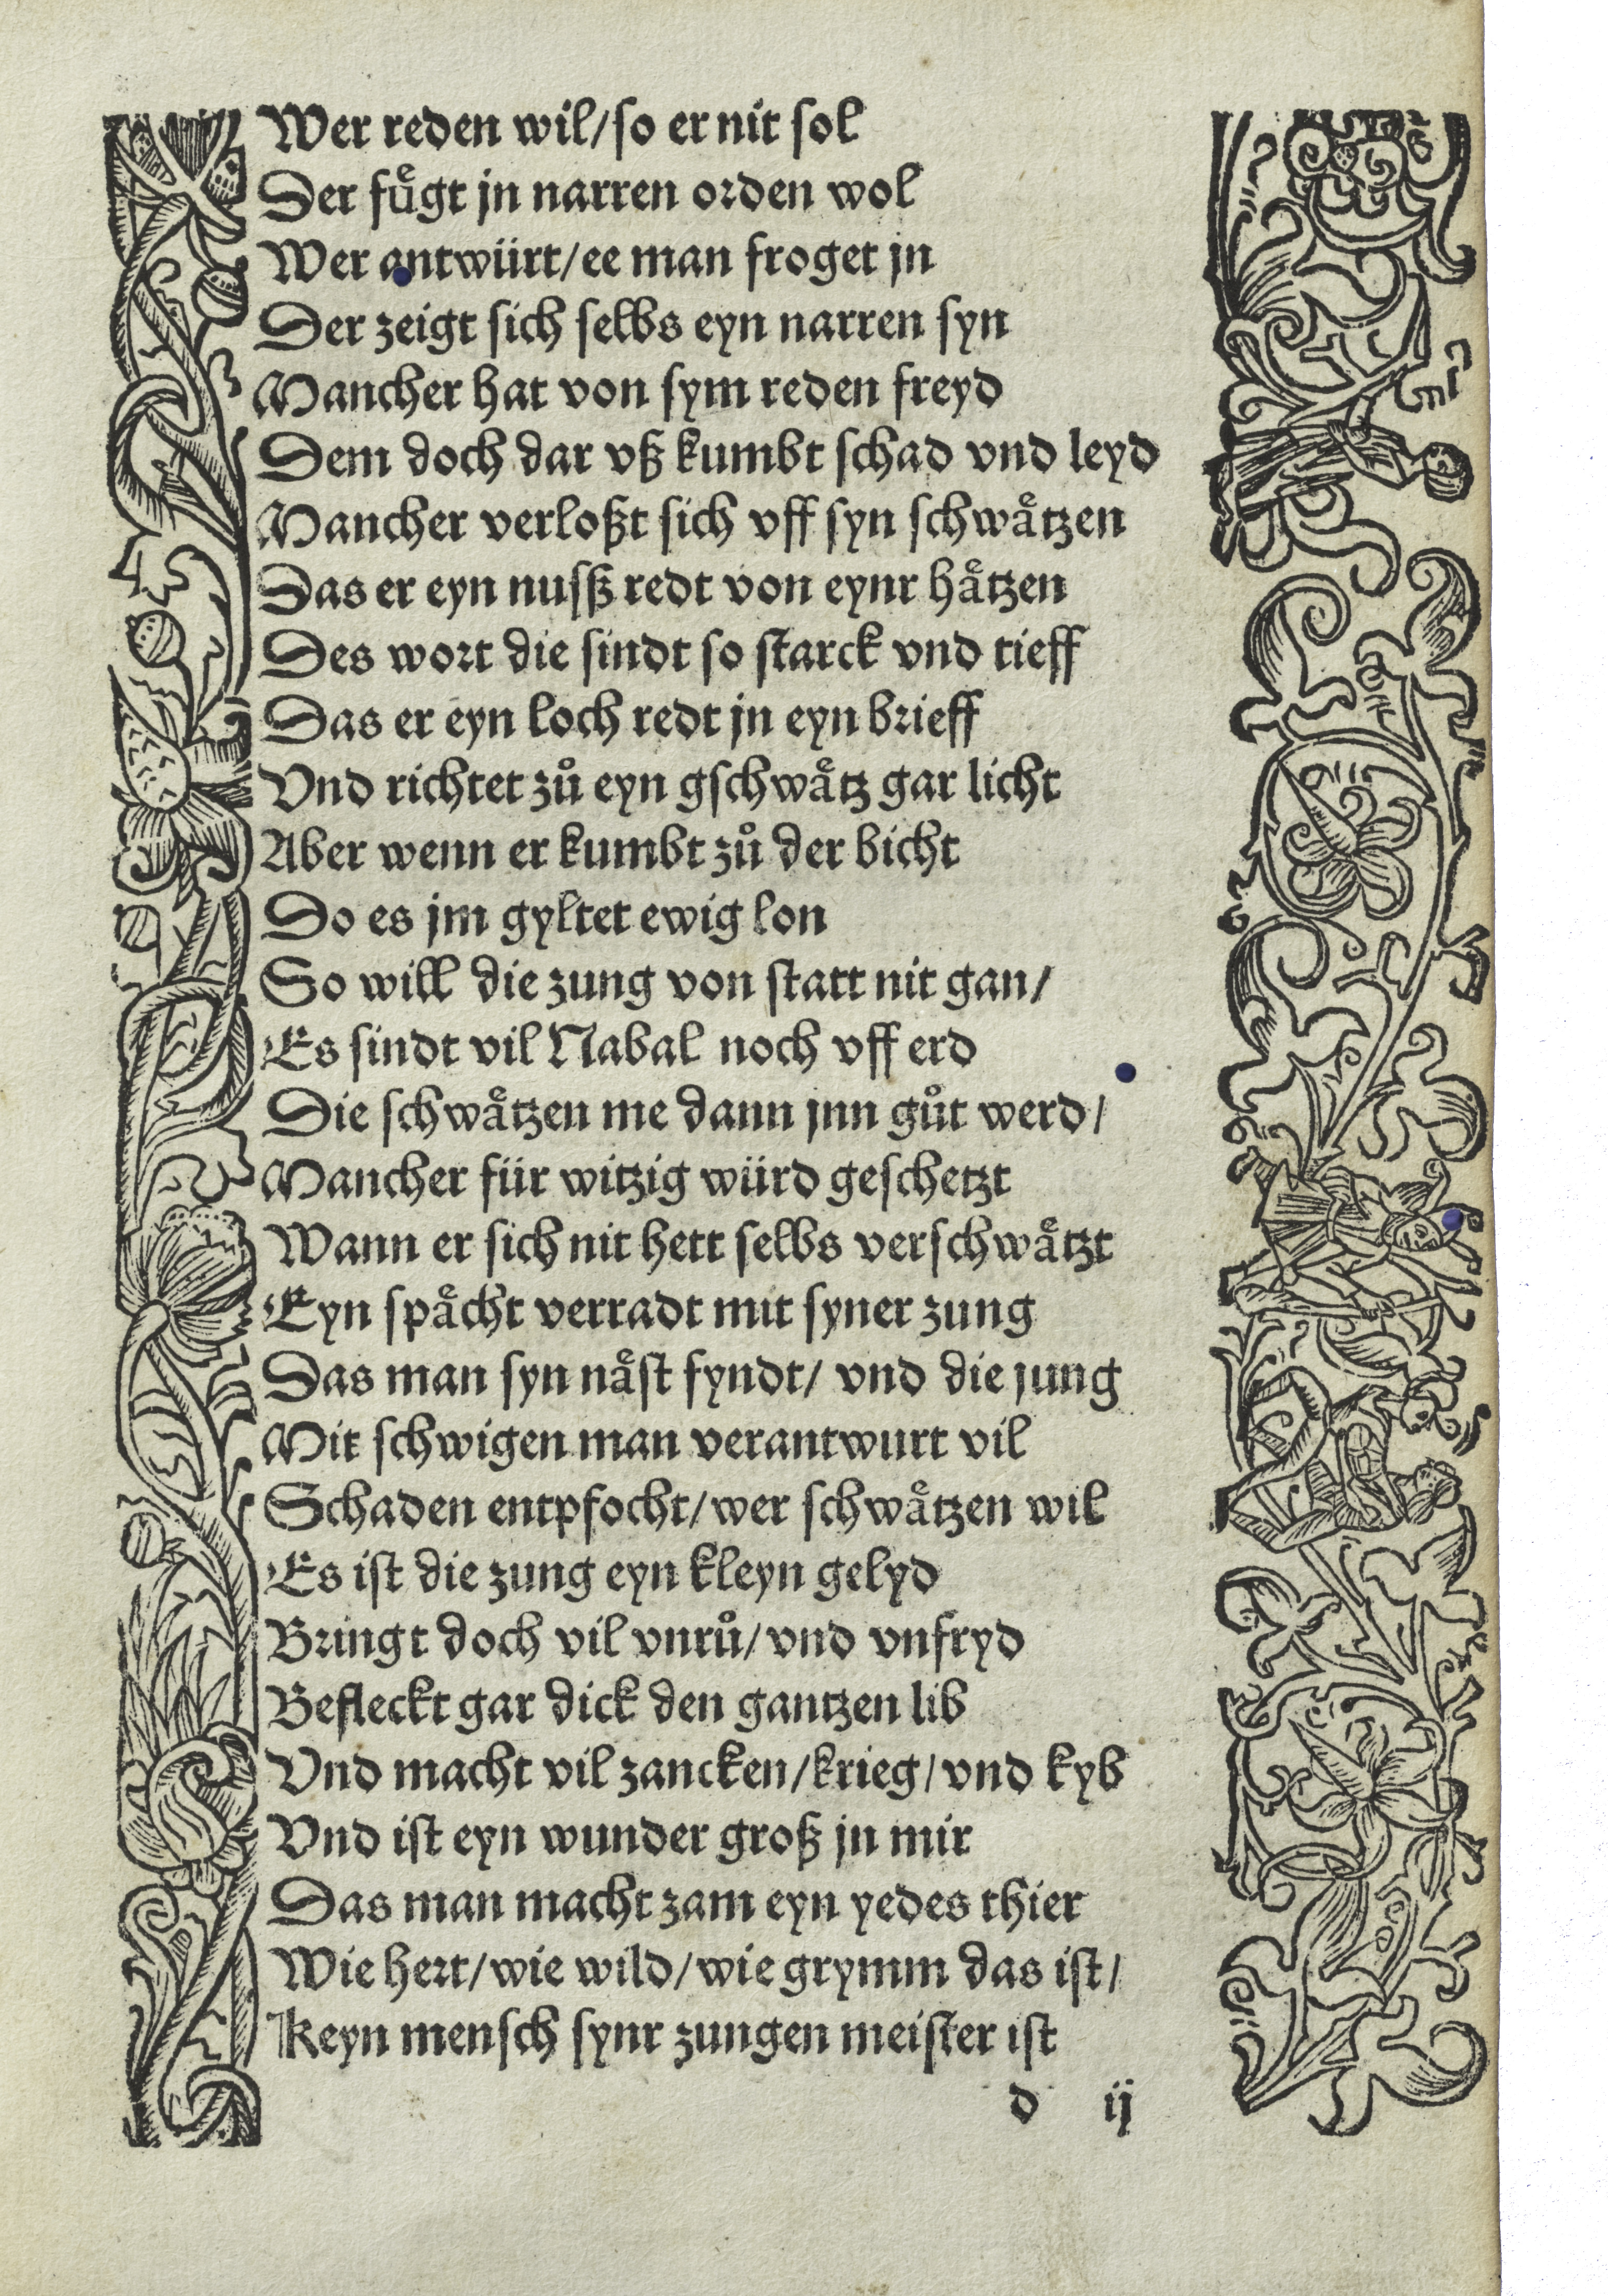 Wer reden wil/so er nit sol
Der fuͤgt jn narren orden wol
Wer antwürt/ee man froget jn
Der zeigt sich selbs eyn narren syn
Mancher hat von sym reden freyd
Dem doch dar vß kumbt schad vnd leyd
Mancher verloßt sich vff syn schwaͤtzen
Das er eyn nusß redt von eynr haͤtzen
Des wort die sindt so starck vnd tieff
Das er eyn loch redt jn eyn brieff
Vnd richtet zuͦ eyn gschwaͤtz gar licht
Aber wenn er kumbt zuͦ der bicht
Do es jm gyltet ewig lon
So will die zung von statt nit gan/
Es sindt vil Nabal noch vff erd
Die schwaͤtzen me dann jnn guͦt werd/
Mancher für witzig würd geschetzt
Wann er sich nit hett selbs verschwaͤtzt
Eyn spaͤcht verradt mit syner zung
Das man syn naͤst fyndt/ vnd die jung
Mit schwigen man verantwurt vil
Schaden entpfocht/wer schwaͤtzen wil
Es ist die zung eyn kleyn gelyd
Bringt doch vil vnruͦ/vnd vnfryd
Befleckt gar dick den gantzen lib
Vnd macht vil zancken/krieg/vnd kyb
Vnd ist eyn wunder groß jn mir
Das man macht zam eyn yedes thier
Wie hert/wie wild/wie grymm das ist/
Keyn mensch synr zungen meister ist
d ij